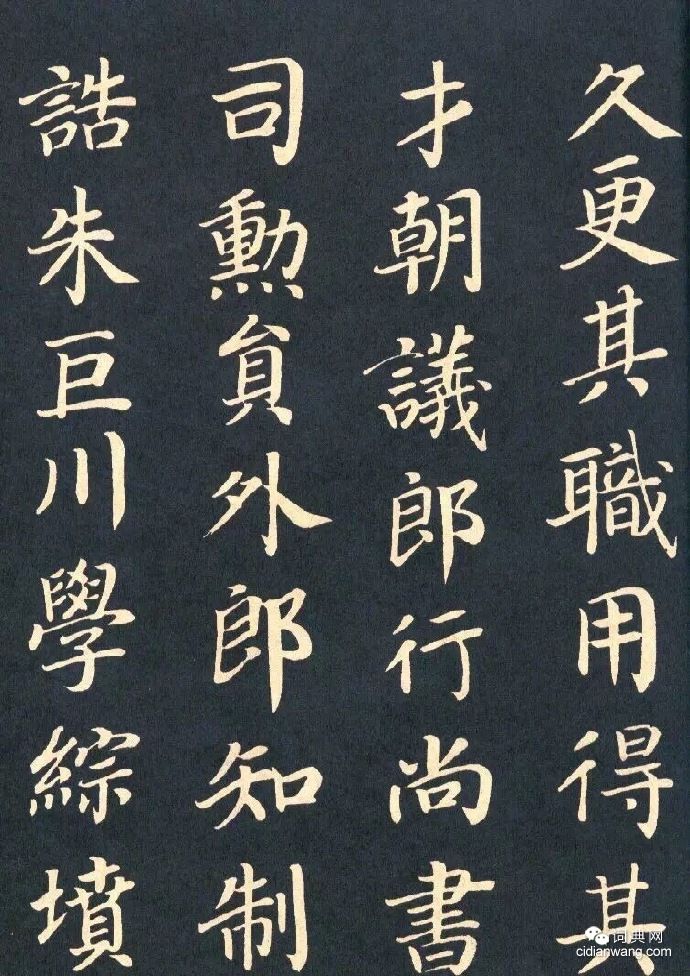 久更其職用得其
才朝議郎行尚書
司勲貟外郎知制
誥朱巨川學綜墳
词典网
cidianwang.com